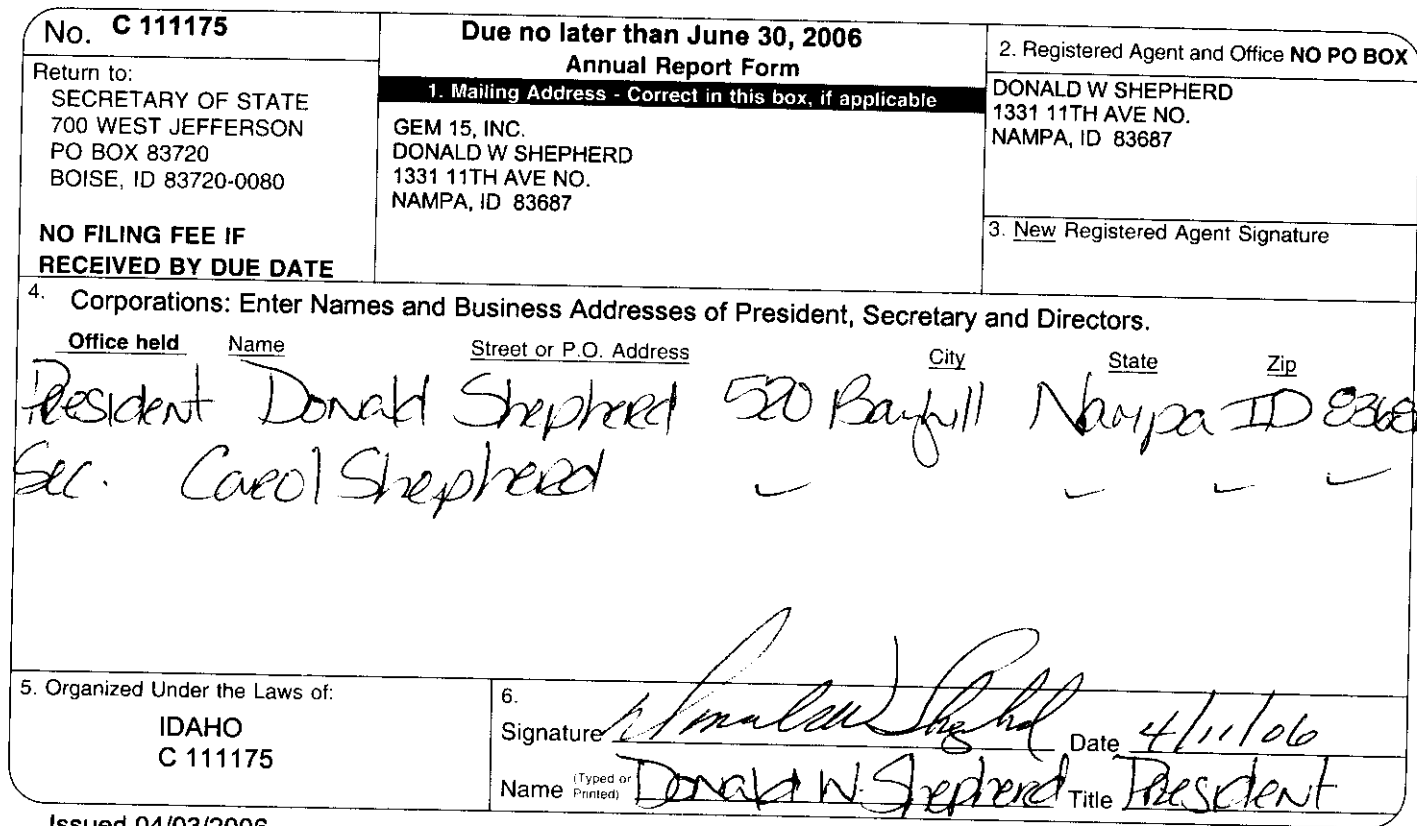 No. C 111175
Return to:
SECRETARY OF STATE
700 WEST JEFFERSON
PO BOX 83720
BOISE, ID 83720-0080
NO FILING FEE IF
RECEIVED BY DUE DATE
Due no later than June 30, 2006
Annual Report Form
1. Mailing Address - Correct in this box, if applicable
GEM 15, INC.
DONALD W SHEPHERD
1331 11TH AVE NO.
NAMPA, ID 83687
2. Registered Agent and Office NO PO BOX
DONALD W SHEPHERD
1331 11TH AVE NO.
NAMPA, ID 83687
3. New Registered Agent Signature
4. Corporations: Enter Names and Business Addresses of President, Secretary and Directors.
Office held Name Street or P.O. Address City State Zip
President Donald Shepherd 520 Bayhill Nampa ID 8368
Sec. Carol Shepherd
5. Organized Under the Laws of:
IDAHO
C 111175
6.
Signature Donald W Shepherd Date 4/11/06
Name (Typed or Printed) Donald W. Shepherd Title President
Issued 04/03/2006